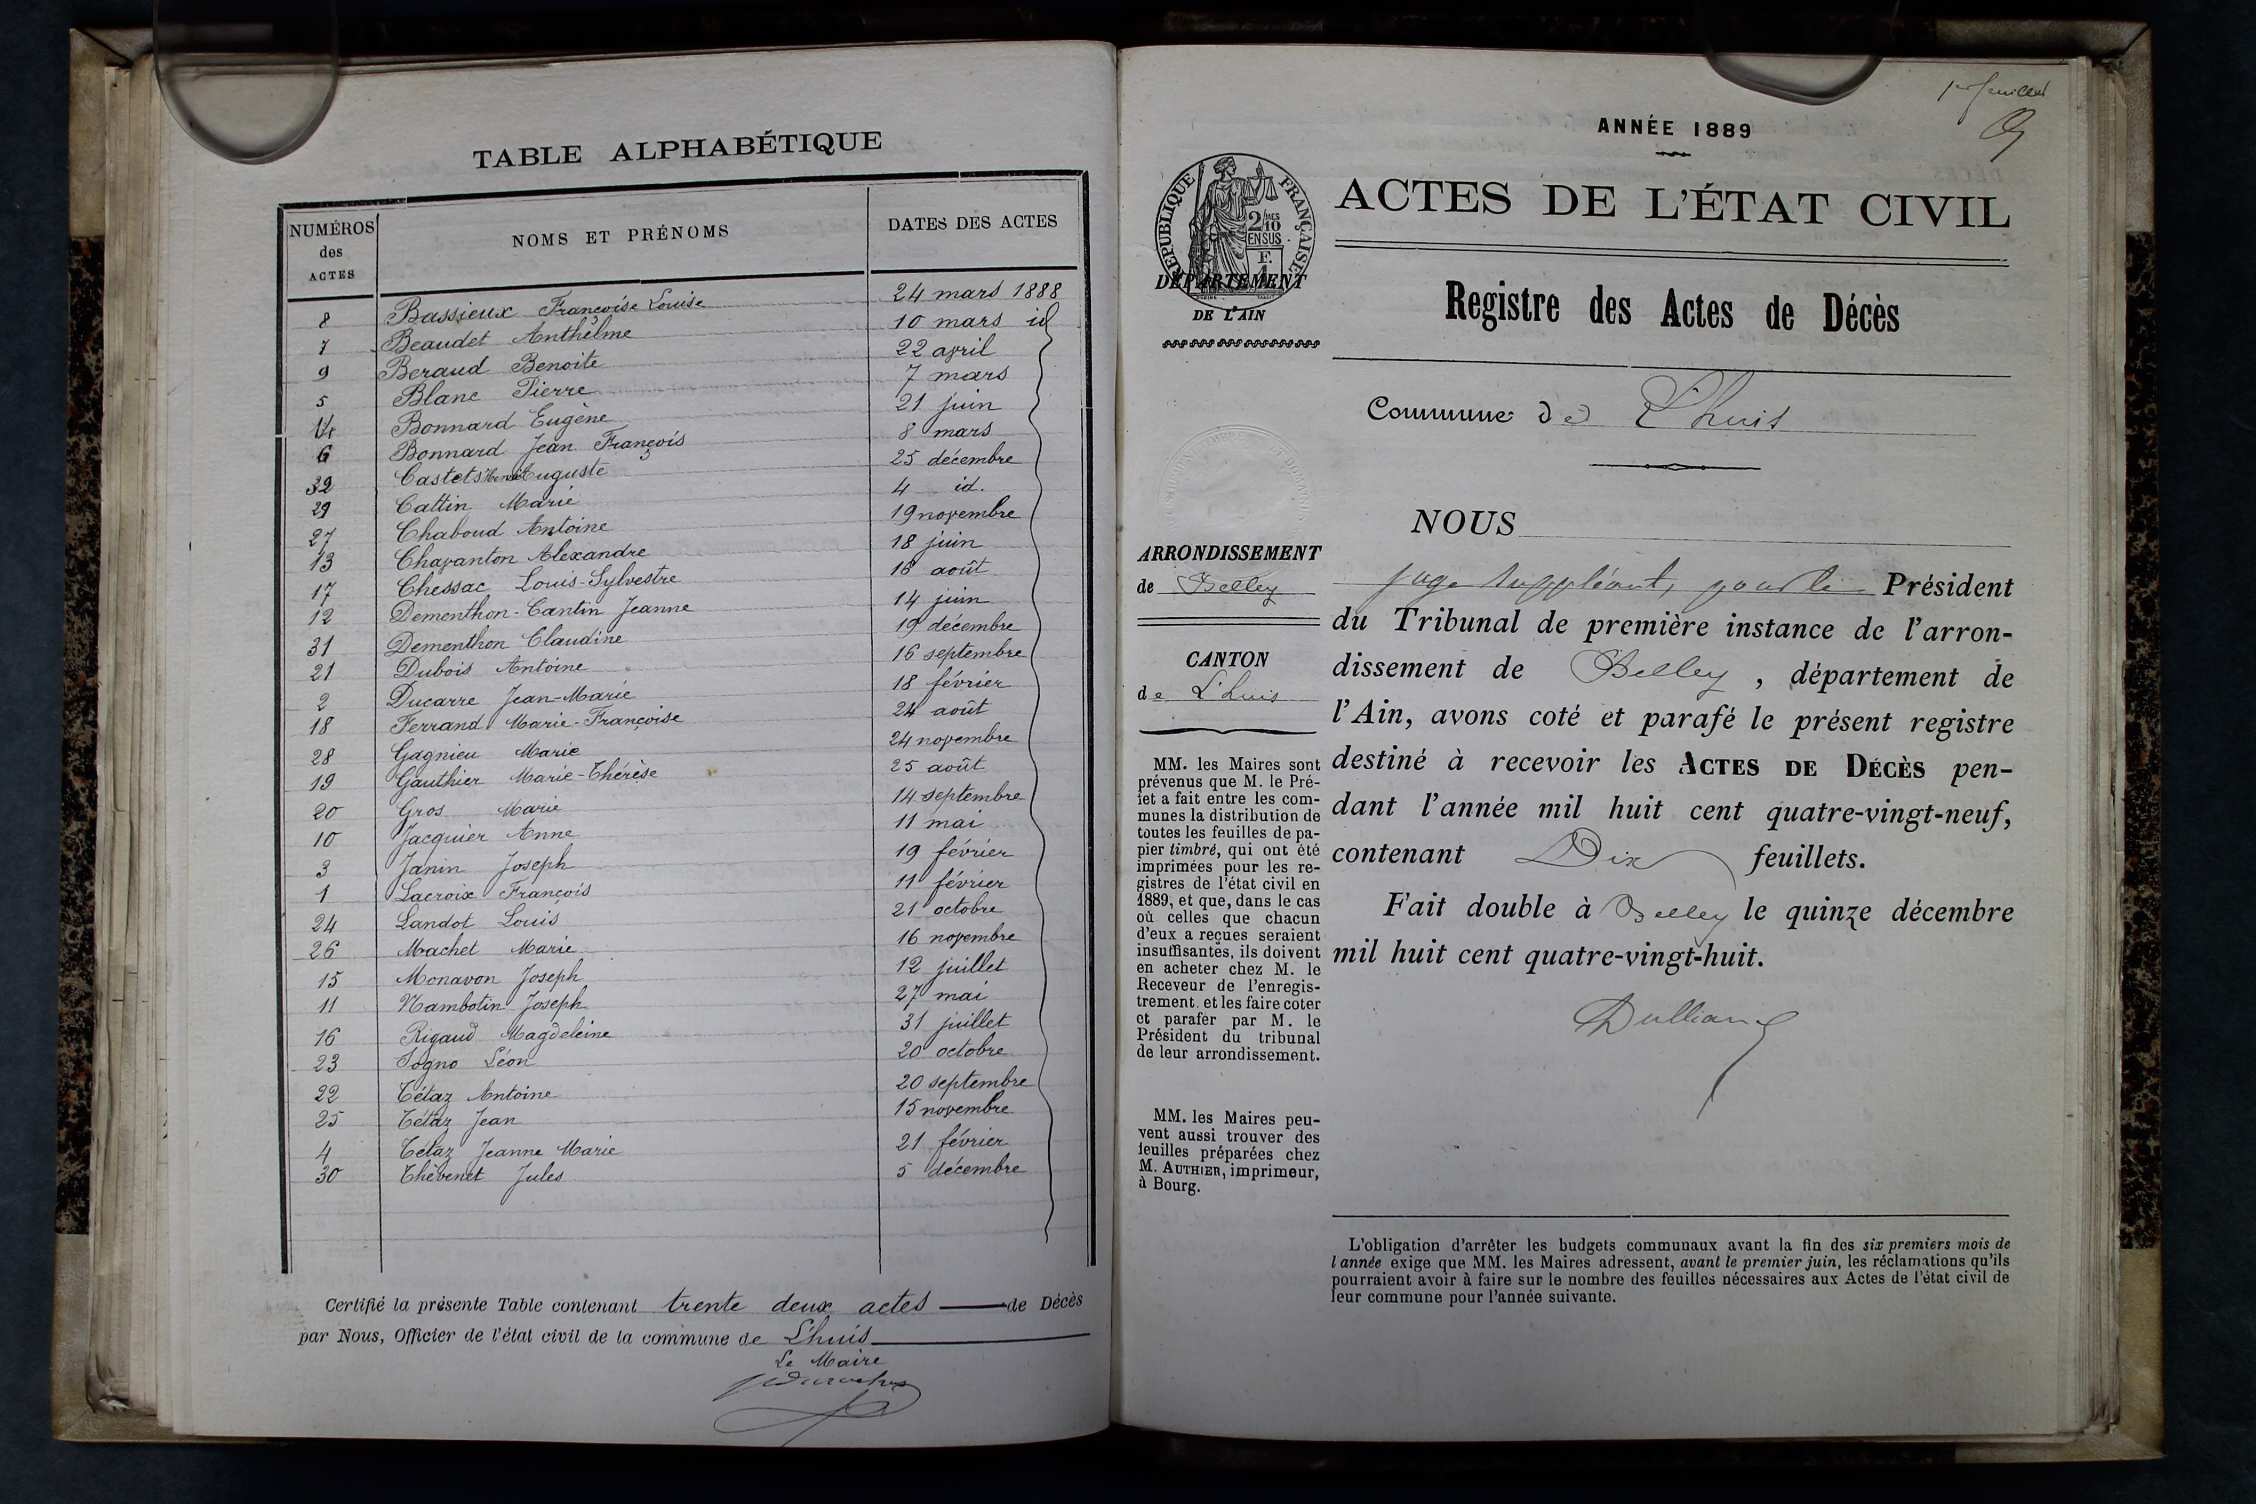 TABLE ALPHABÉTIQUE
NUMÉROS des ACTES NOMS ET PRÉNOMS DATES DES ACTES
8 Bassieux Françoise Louise 24 mars 1888
7 Beaudet Anthelme 10 mars id
9 Beraud Benoite 22 avril
5 Blanc Pierre 7 mars
14 Bonnard Eugène 21 juin
6 Bonnard Jean François 8 mars
32 Castets Henri Auguste 25 décembre
29 Cattin Marie 4 id.
27 Chaboud Antoine 19 novembre
13 Chavanton Alexandre 18 juin
17 Chessac Louis-Sylvestre 16 août
12 Dementhon-Cantin Jeanne 14 juin
31 Dementhon Claudine 19 décembre
21 Dubois Antoine 16 septembre
2 Ducarre Jean-Marie 18 février
18 Ferrand Marie-Françoise 24 août
28 Gagnieu Marie 24 novembre
19 Gauthier Marie-Thérèse 25 août
20 Gros Marie 14 septembre
10 Jacquier Anne 11 mai
3 Janin Joseph 19 février
1 Lacroix François 11 février
24 Landot Louis 21 octobre
26 Machet Marie 16 novembre
15 Monavon Joseph 12 juillet
11 Nambotin Joseph 27 mai
16 Rigaud Magdeleine 31 juillet
23 Sogno Léon 20 octobre
22 Tétaz Antoine 20 septembre
25 Tétaz Jean 15 novembre
4 Tétaz Jeanne Marie 21 février
30 Thévenet Jules 5 décembre
Certifié la présente Table contenant trente deux actes de Décès
par Nous, Officier de l'état civil de la commune de Lhuis
Le Maire
1er feuillet
ANNÉE 1889
RÉPUBLIQUE FRANÇAISE
2/10 MES
EN SUS
F.
DÉPARTEMENT
DE L'AIN
ACTES DE L'ÉTAT CIVIL
Registre des Actes de Décès
Commune de Lhuis
ARRONDISSEMENT
de Belley
CANTON
de L'huis
MM. les Maires sont
prévenus que M. le Pré-
fet a fait entre les com-
munes la distribution de
toutes les feuilles de pa-
pier timbré, qui ont été
imprimées pour les re-
gistres de l'état civil en
1889, et que, dans le cas
où celles que chacun
d'eux a reçues seraient
insuffisantes, ils doivent
en acheter chez M. le
Receveur de l'enregis-
trement et les faire coter
et parafer par M. le
Président du tribunal
de leur arrondissement.
MM. les Maires peu-
vent aussi trouver des
feuilles préparées chez
M. AUTHIER, imprimeur,
à Bourg.
NOUS
juge suppléant, pour le Président
du Tribunal de première instance de l'arron-
dissement de Belley, département de
l'Ain, avons coté et parafé le présent registre
destiné à recevoir les ACTES DE DÉCÈS pen-
dant l'année mil huit cent quatre-vingt-neuf,
contenant Dix feuillets.
Fait double à Belley le quinze décembre
mil huit cent quatre-vingt-huit.
L'obligation d'arrêter les budgets communaux avant la fin des six premiers mois de
l'année exige que MM. les Maires adressent, avant le premier juin, les réclamations qu'ils
pourraient avoir à faire sur le nombre des feuilles nécessaires aux Actes de l'état civil de
leur commune pour l'année suivante.